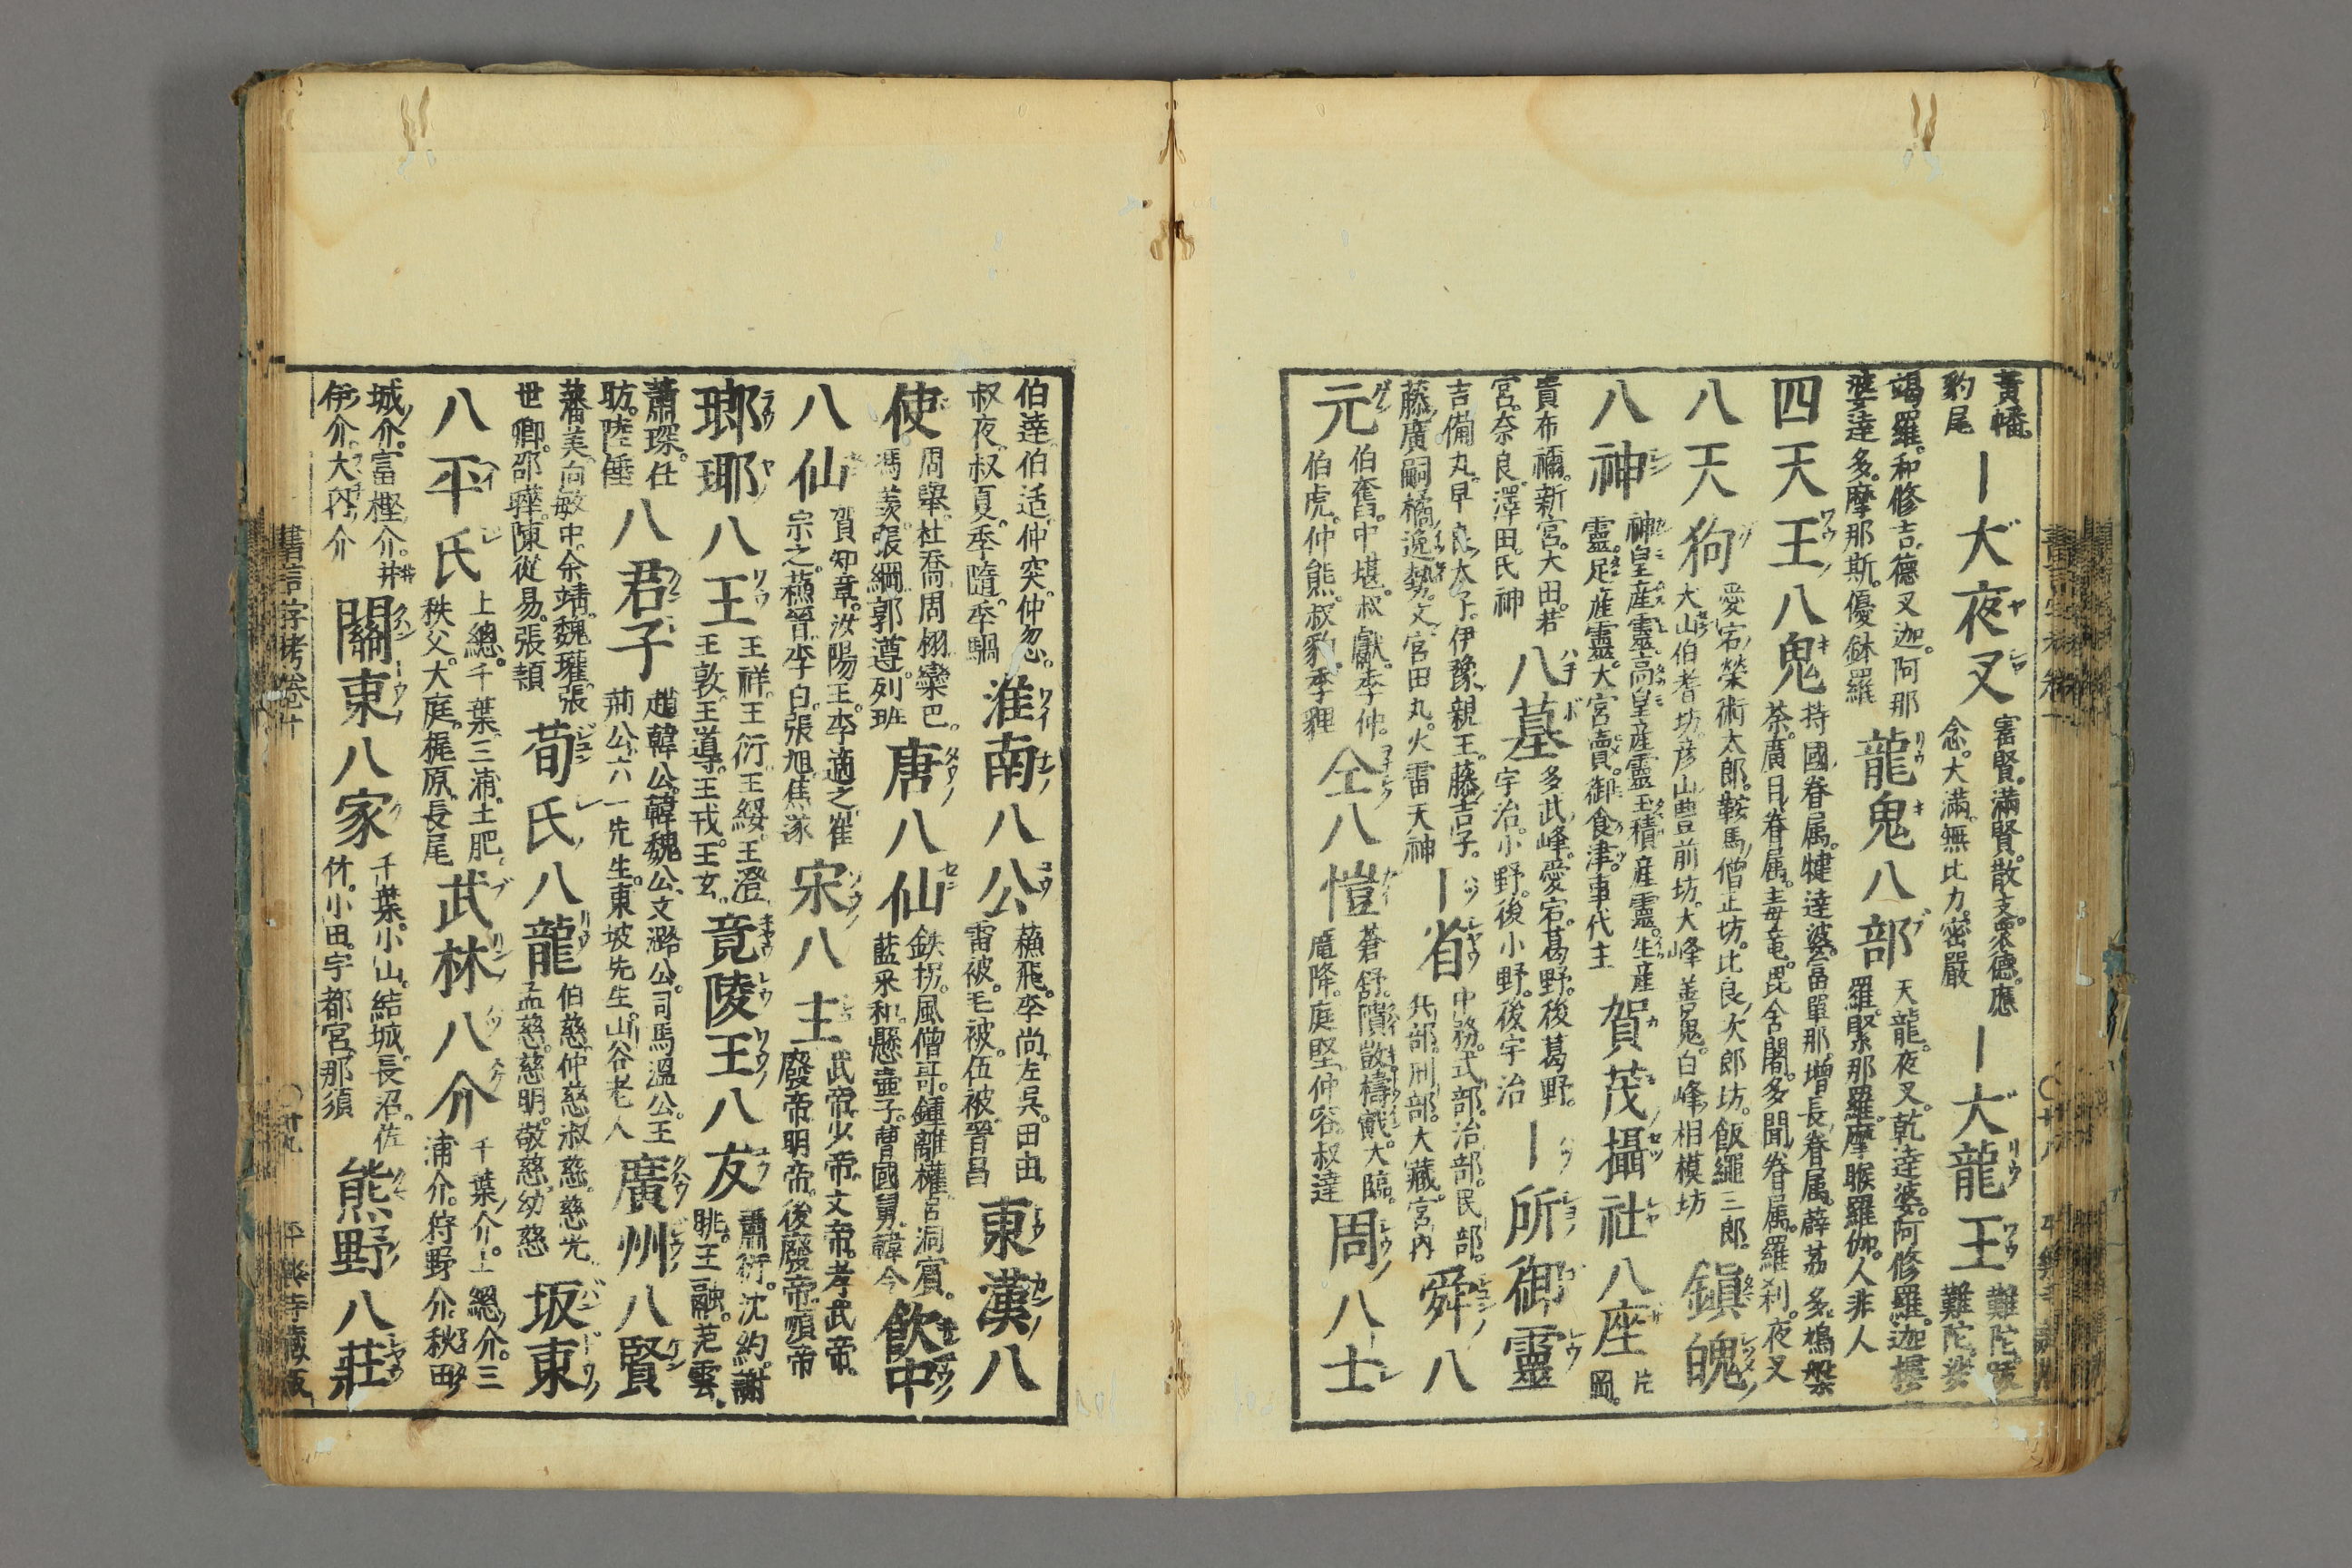 黃幡。豹尾 ー大夜叉 審賢。滿賢。散支。衆德。應念。大滿。無比力。密嚴 ー大龍王 難陀。跋難陀。娑
竭羅。和修吉。德叉迦。阿那婆達多。摩那斯。優鉢羅 龍鬼八部 天龍。夜叉。乾達婆。阿修羅。迦樓羅。緊那羅。摩睺羅伽。人非人
四天王八鬼 持國眷属。犍達婆。富單那。增長眷属。薜茘多。鳩槃荼。廣目眷属。毒竜。毘舍闍。多聞眷属。羅刹。夜叉
八天狗 愛宕榮術太郎。鞍馬僧正坊。比良次郎坊。飯繩三郎。大山伯耆坊。彦山豊前坊。大峰善鬼。白峰相模坊 鎮魄
八神 神皇産靈。高皇産靈。玉積産靈。生産靈。足産靈。大宮賣。御食津。事代主 賀茂攝社八座 片岡。
貴布禰。新宮。大田。若宮。奈良。澤田。氏神 八墓 多武峰。愛宕。葛野。後葛野。宇治。小野。後小野。後宇治 ー所御靈
吉備丸。早良太子。伊豫親王。藤吉子。藤廣嗣。橘逸勢。文宮田丸。火雷天神 ー省 中務。式部。治部。民部。兵部。刑部。大藏。宮内 舜八
元 伯奮。中堪。叔獻。季仲。伯虎。仲熊。叔豹。季貍 仝八愷 蒼舒。隤敳。檮戭。大臨。厖降。庭堅。仲容。叔達 周八士
伯達。伯适。仲突。仲忽。叔夜。叔夏。季隨。季騧 淮南八公 蘇飛。李尚。左呉。田由。雷被。毛被。伍被。晋昌 東漢八
使 周擧。杜喬。周栩。欒巴。馮羨。張綱。郭遵。列班 唐八仙 鉄拐。風僧哥。鍾離權。呂洞賓。藍采和。懸壷子。曹國舅。韓今 飲中
八仙 賀知章。汝陽王。李適之。崔宗之。蘇晋。李白。張旭。焦遂 宋八主 武帝。少帝。文帝。孝武帝。廢帝。明帝。後廢帝。順帝
瑯琊八王 王祥。王衍。王綏。王澄。王敦。王導。王戎。王玄。 竟陵王八友 蕭衍。沈約。謝朓。王融。范雲。
蕭琛。任昉。陸倕 八君子 趙韓公。韓魏公。文潞公。司馬温公。王荊公。六一先生。東坡先生。山谷老人 廣州八賢
蕃美。向敏中。余靖。魏瓘。張世卿。邵曄。陳從易。張頡 荀氏八龍 伯慈。仲慈。淑慈。慈光。孟慈。慈明。敬慈。幼慈 坂東
八平氏 上總。千葉。三浦。土肥。秩父。大庭。梶原。長尾 武林八介 千葉介。上總介。三浦介。狩野介。秋田
城介。富樫介。井伊介。大内介 關東八家 千葉。小山。結城。長沼。佐竹。小田。宇都宮。那須 熊野八莊
書言字考卷十